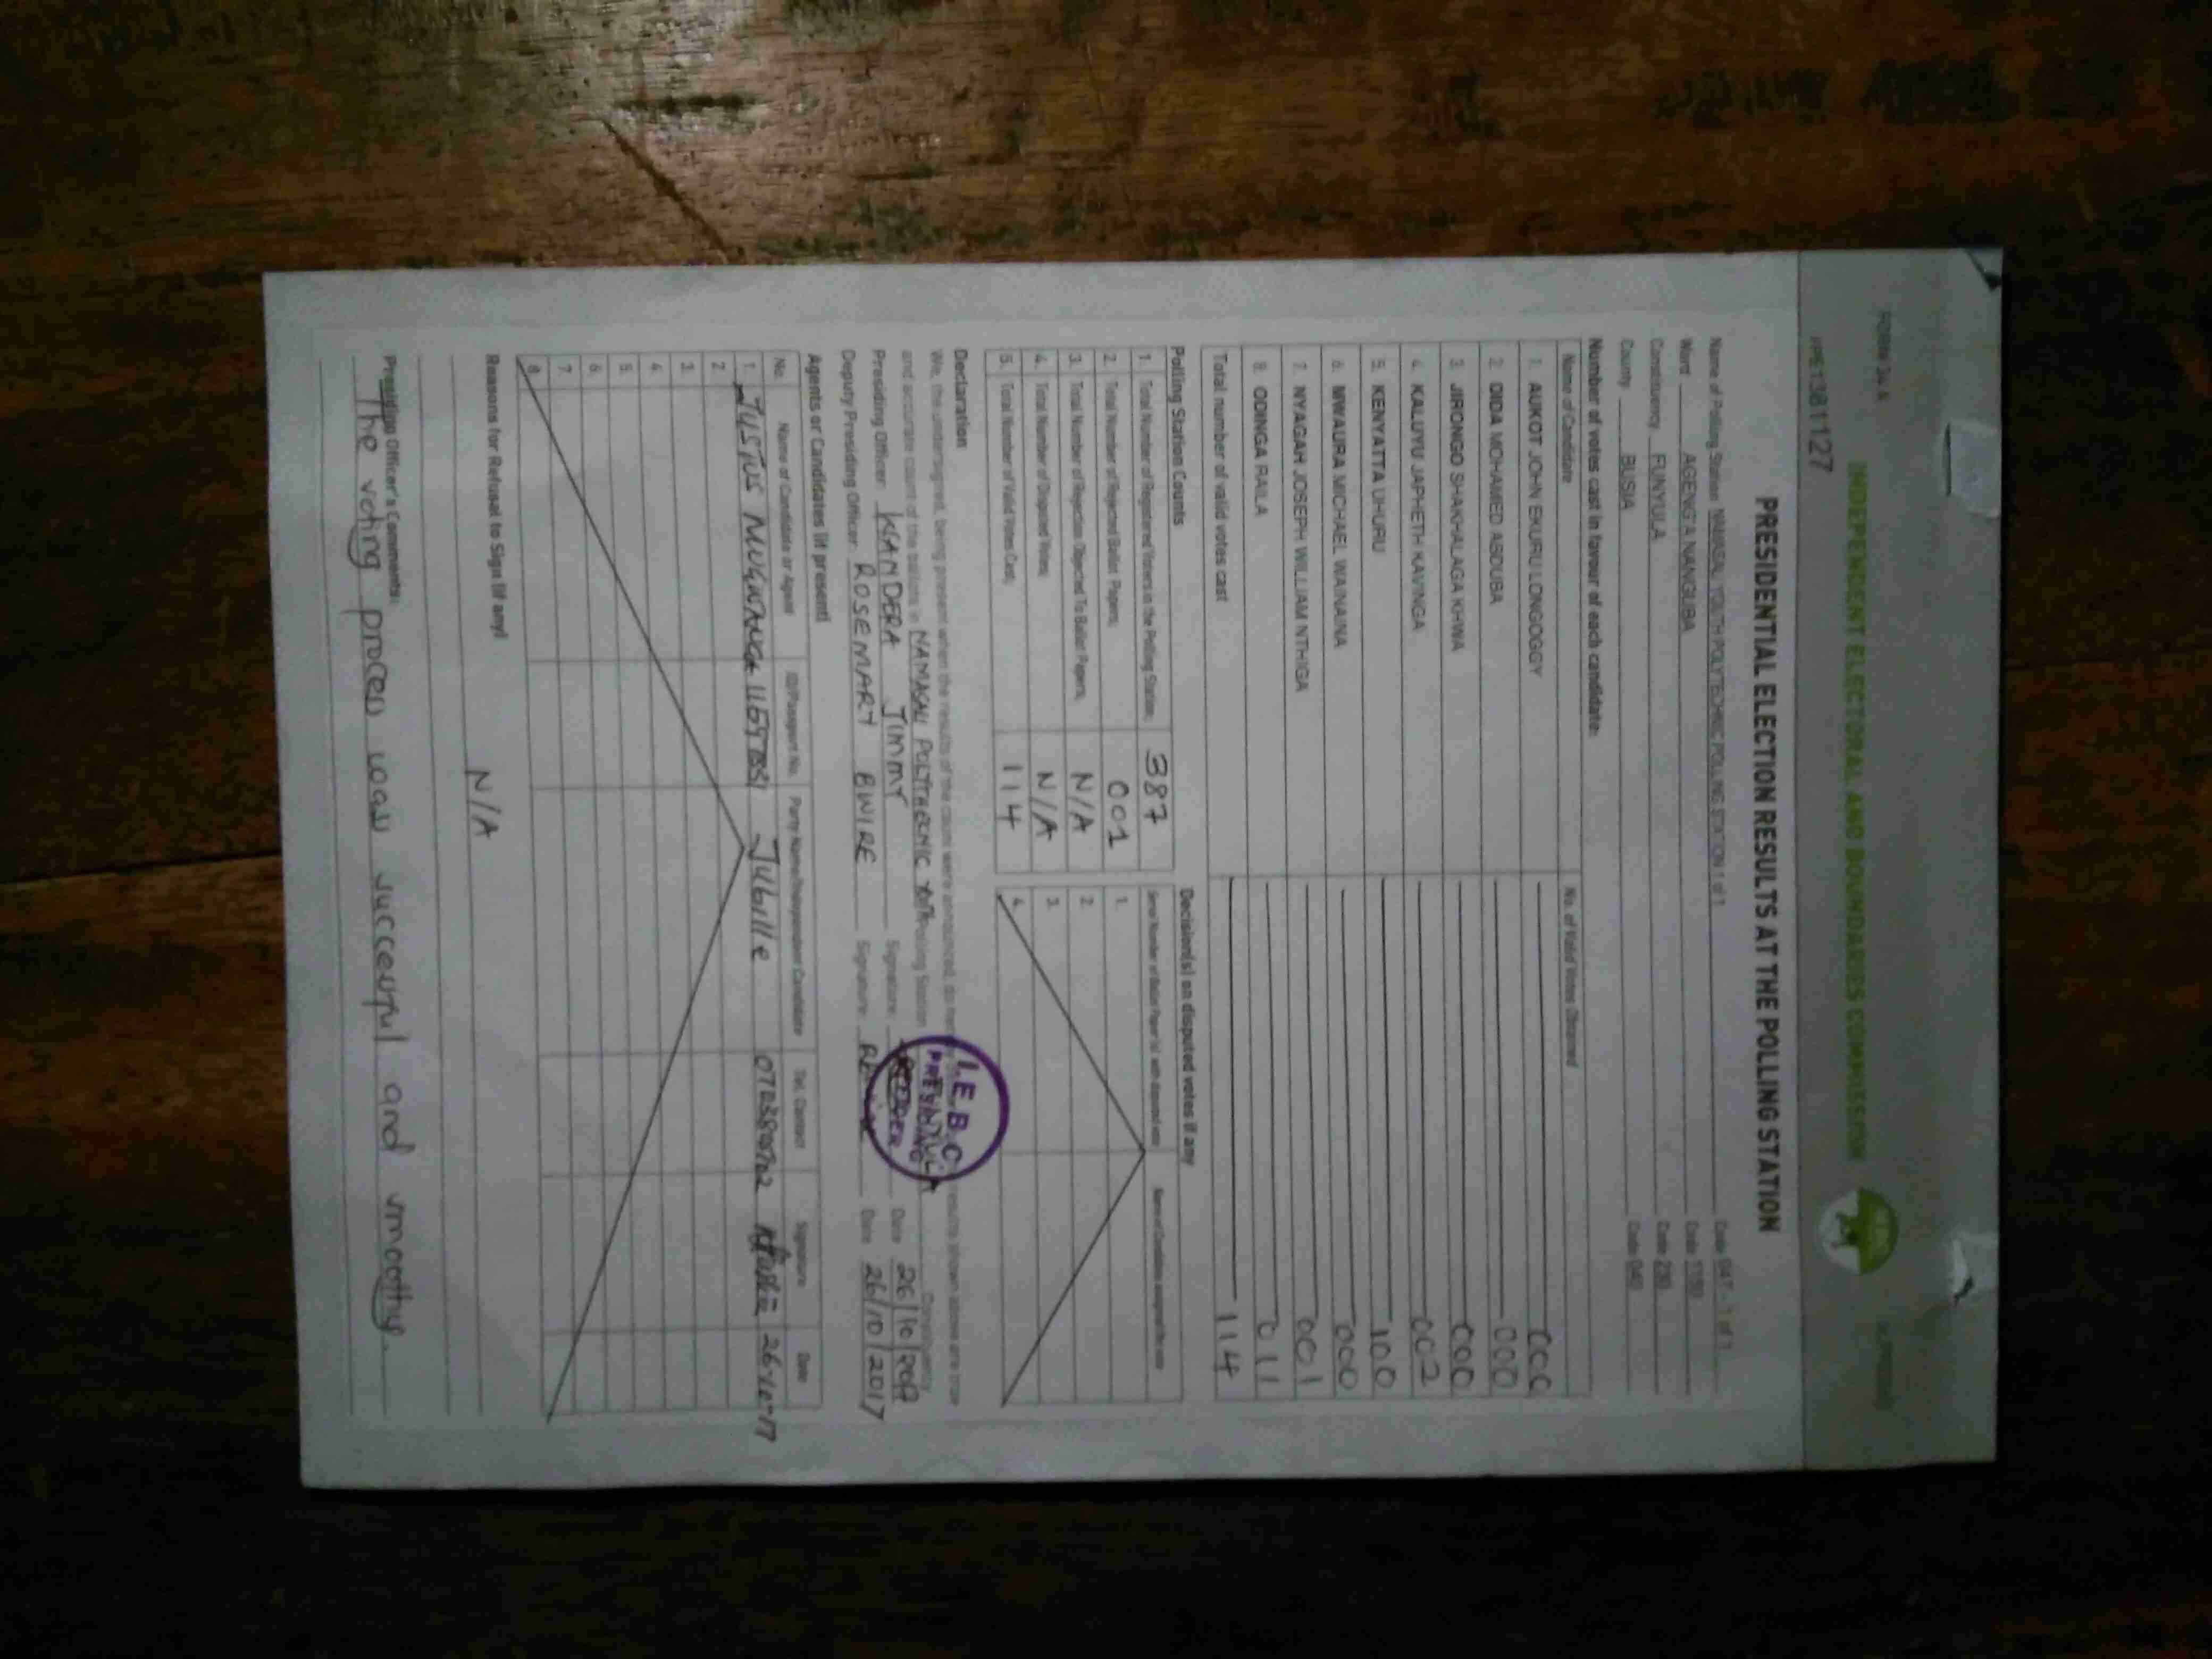 FORM 34 A
INDEPENDENT ELECTORAL AND BOUNDARIES COMMISSION
PPE1381127
PRESIDENTIAL ELECTION RESULTS AT THE POLLING STATION
Name of Polling Station YOUTH POLYTECHNIC POLLING STATION 1 of 1 Code 047 - 1 of 1
Ward AGENG'A NANGUBA Code
Constituency FUNYULA Code 230
County BUSIA Code 040
Number of votes cast in favour of each candidate:
Name of Candidate No. of Valid Votes Obtained
1. AUKOT JOHN EKURU LONGOGGY 000
2. DIDA MOHAMED ABDUBA 000
3. JIRONGO SHAKHALAGA KHWA 000
4. KALUYU JAPHETH KAVINGA 002
5. KENYATTA UHURU 100
6. MWAURA MICHAEL WAINAINA 000
7. NYAGAH JOSEPH WILLIAM NTHIGA 001
8. ODINGA RAILA 011
Total number of valid votes cast 114
Polling Station Counts
1. Total Number of Registered Voters in the Polling Station; 387
2. Total Number of Rejected Ballot Papers; 001
3. Total Number of Rejection Objected To Ballot Papers; N/A
4. Total Number of Disputed Votes; N/A
5. Total Number of Valid Votes Cast; 114
Decision(s) on disputed votes if any
1.
2.
3.
4.
Declaration
We, the undersigned, being present when the results of the count were announced, do results shown above are true
and accurate count of the ballots in Polling Station Constituency
Presiding Officer: WANDERA JIMMY Signature: Date 26/10/2017
Deputy Presiding Officer: ROSEMARY BWIRE Signature: Date 26/10/2017
I.E.B.C
PRESIDING
Agents or Candidates (if present)
No. Name of Candidate or Agent ID/Passport No. Party Name/Independent Candidate Tel. Contact Signature Date
1. JUSTUS Jubille 26-10-17
2.
3.
4.
5.
6.
7.
8.
Reasons for Refusal to Sign (if any)
N/A
Presiding Officer's Comments:
The voting process was successful and smoothy.